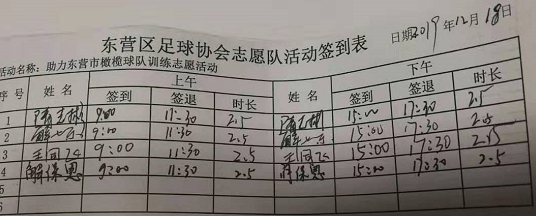 东营区足球协会志愿队活动签到表
日期2019年12月18日
活动名称：助力东营市橄榄球队训练志愿活动
序号 姓名 上午 姓名 下午
签到 签退 时长 签到 签退 时长
1 9:00 11:30 2.5 15:00 17:30 2.5
2 9:00 11:30 2.5 15:00 17:30 2.5
3 9:00 11:30 2.5 15:00 17:30 2.5
4 解保恩 9:00 11:30 2.5 15:00 17:30 2.5
5
6